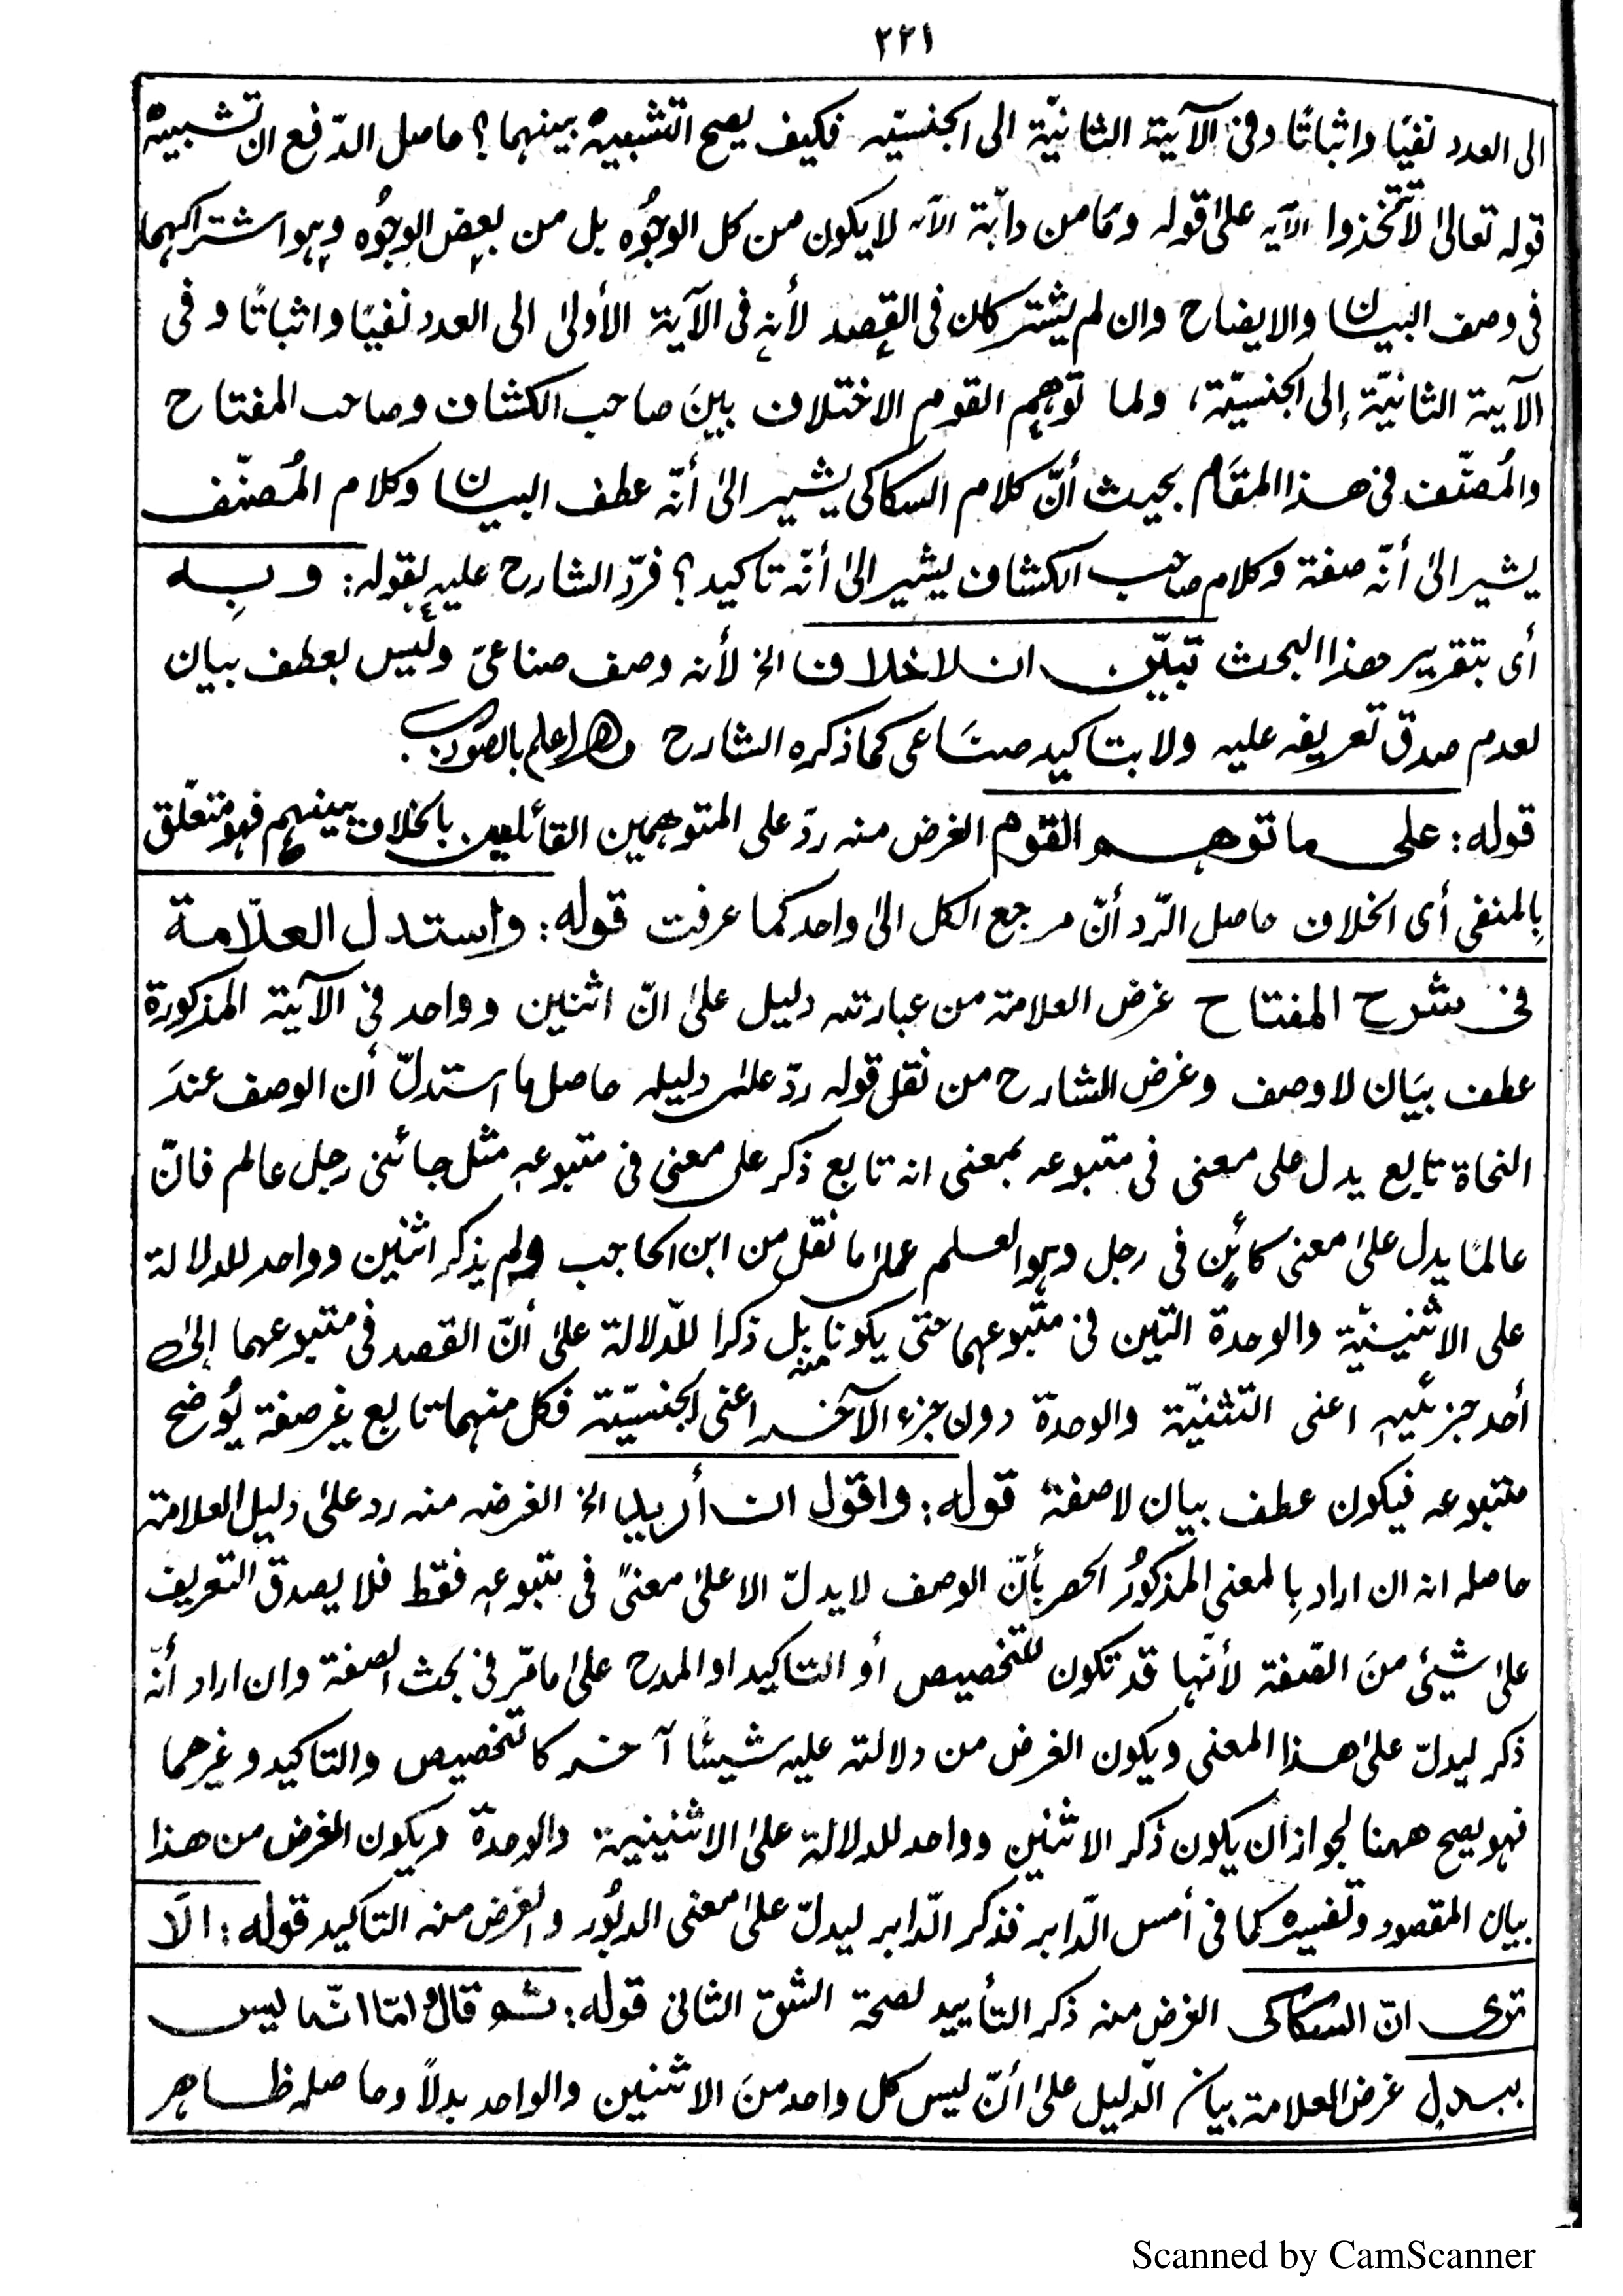 ٢٢١
الى العدد نفيًا واثباتًا وفى الآية الثانيّة الى الجنسيّه فكيف يصح التشبيه بينهما؟ حاصل الدّفع ان تشبيه
قوله تعالىٰ لا تتّخذوا الآيه علىٰ قوله ومَا من دابّة الآيه لا يكون من كل الوجُوه بل من بعض الوجُوه وهو اشتراكهما
فى وصف البيان والايضاح وان لم يشتركان فى القصد لأنه فى الآية الأولىٰ الى العدد نفيًا واثباتًا و فى
الآية الثانيّة إلى الجنسيّة، ولما توهم القوم الاختلاف بينَ صاحب الكشاف وصاحب المفتاح
والمُصنّف فى هذا المقَام بحيث أنّ كلام السكاكى يشير الىٰ أنّه عطف البيان وكلام المُصنّف
يشير الىٰ أنّه صفة وكلام صاحب الكشاف يشير الىٰ أنّه تاكيد؟ فردّ الشارح عليه بقوله: وبِه
أى بتقرير هذا البحث تبيّن ان لا خلاف الخ لأنه وصف صناعىّ وليس بعطف بيان
لعدم صدق تعريفه عليه ولا بتاكيد صنَاعى كما ذكره الشارح والله اعلم بالصواب.
قوله: على ما توهم القوم الغرض منه ردّ على المتوهمين القائلين بالخلاف بينهم فهو متعلّق
بِالمنفى أى الخلاف حاصل الرّد أنّ مرجع الكل الىٰ واحد كما عرفت قوله: واستدل العلّامة
فى شرح المفتاح غرض العلامة من عبارته دليل علىٰ انّ اثنين وواحد فى الآية المذكورة
عطف بيَان لا وصف وغرض الشارح من نقل قوله ردّ علىٰ دليله حاصل ما استدلّ أن الوصف عندَ
النحاة تابع يدل على معنى فى متبوعه بمعنى انه تابع ذكر على معنى فى متبوعه مثل جائنى رجل عالم فانّ
عالمًا يدل علىٰ معنىً كائنٍ فى رجل وهو العلم علىٰ ما نقل من ابن الحاجب ولم يذكر اثنين وواحد للدلالة
على الاثنينيّة والوحدة التين فى متبوعهما حتى يكونا منه بل ذكرا للدّلالة علىٰ أنّ القصد فى متبوعهما إلىٰ
أحد جزئيه اعنى التثنيّة والوحدة دون جزء الآخر اعنى الجنسيّة فكل منهما تابع غير صفة يُوضح
متبوعه فيكون عطف بيان لا صفة قوله: واقول ان أريد الخ الغرض منه رد علىٰ دليل العلامة
حاصله انه ان اراد بِالمعنى المذكورُ الحصر بأنّ الوصف لا يدلّ الا علىٰ معنىً فى متبوعه فقط فلا يصدق التعريف
علىٰ شيئ منَ الصّفة لأنّها قد تكون للتخصيص أو التاكيد او المدح علىٰ ما مّر فى بحث الصفة وان اراد أنّه
ذكر ليدلّ علىٰ هذا المعنى ويكون الغرض من دلالته عليه شيئًا آخر كالتخصيص والتاكيد وغيرهما
فهو يصح ههنا لجواز ان يكون ذكر الاثنين وواحد للدلالة علىٰ الاثنينية والوحدة ويكون الغرض من هذا
بيان المقصود وتفسيره كما فى أمس الدّابر فذكر الدّابر ليدلّ علىٰ معنى الدبُور والغرض منه التاكيد قوله: الَا
ترى انّ السكاكى الغرض منه ذكر التأييد لصحة الشق الثانى قوله: ثم قال وامّا انّه ليس
ببدلٍ غرض العلامة بيان الدّليل علىٰ أنّ ليس كل واحد منَ الاثنين والواحد بدلاً وحاصله ظاهر
Scanned by CamScanner